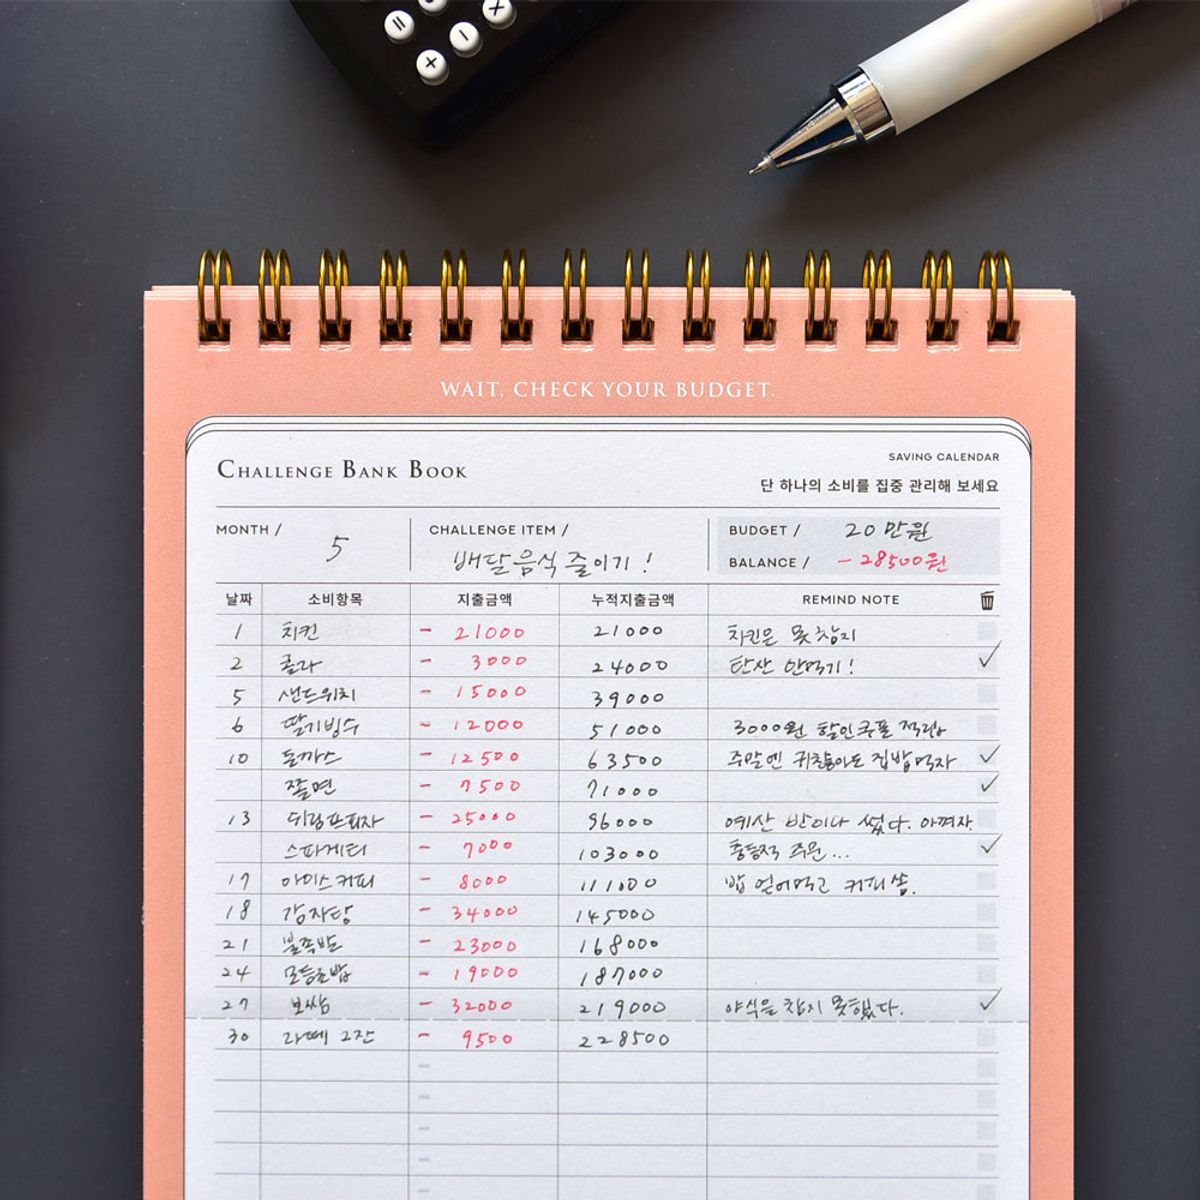 WAIT, CHECK YOUR BUDGET.
CHALLENGE BANK BOOK
SAVING CALENDAR
단 하나의 소비를 집중 관리해 보세요
MONTH / 5 CHALLENGE ITEM / 배달음식 줄이기! BUDGET / 20만원
BALANCE / - 28500원
날짜 소비항목 지출금액 누적지출금액 REMIND NOTE
1 치킨 - 21000 21000 치킨은 못참지
2 콜라 - 3000 24000 탄산 안먹기!
5 샌드위치 - 15000 39000
6 딸기빙수 - 12000 51000 3000원 할인쿠폰 적립
10 돈까스 - 12500 63500 주말엔 귀찮아도 집밥먹자
쫄면 - 7500 71000
13 쉬림프피자 - 25000 96000 예산 반이나 썼다. 아껴자.
스파게티 - 7000 103000 충동적 주문...
17 아이스커피 - 8000 111000 밥 얻어먹고 커피쏨.
18 감자탕 - 34000 145000
21 불족발 - 23000 168000
24 모듬초밥 - 19000 187000
27 보쌈 - 32000 219000 야식을 참지 못했다.
30 라떼 2잔 - 9500 228500